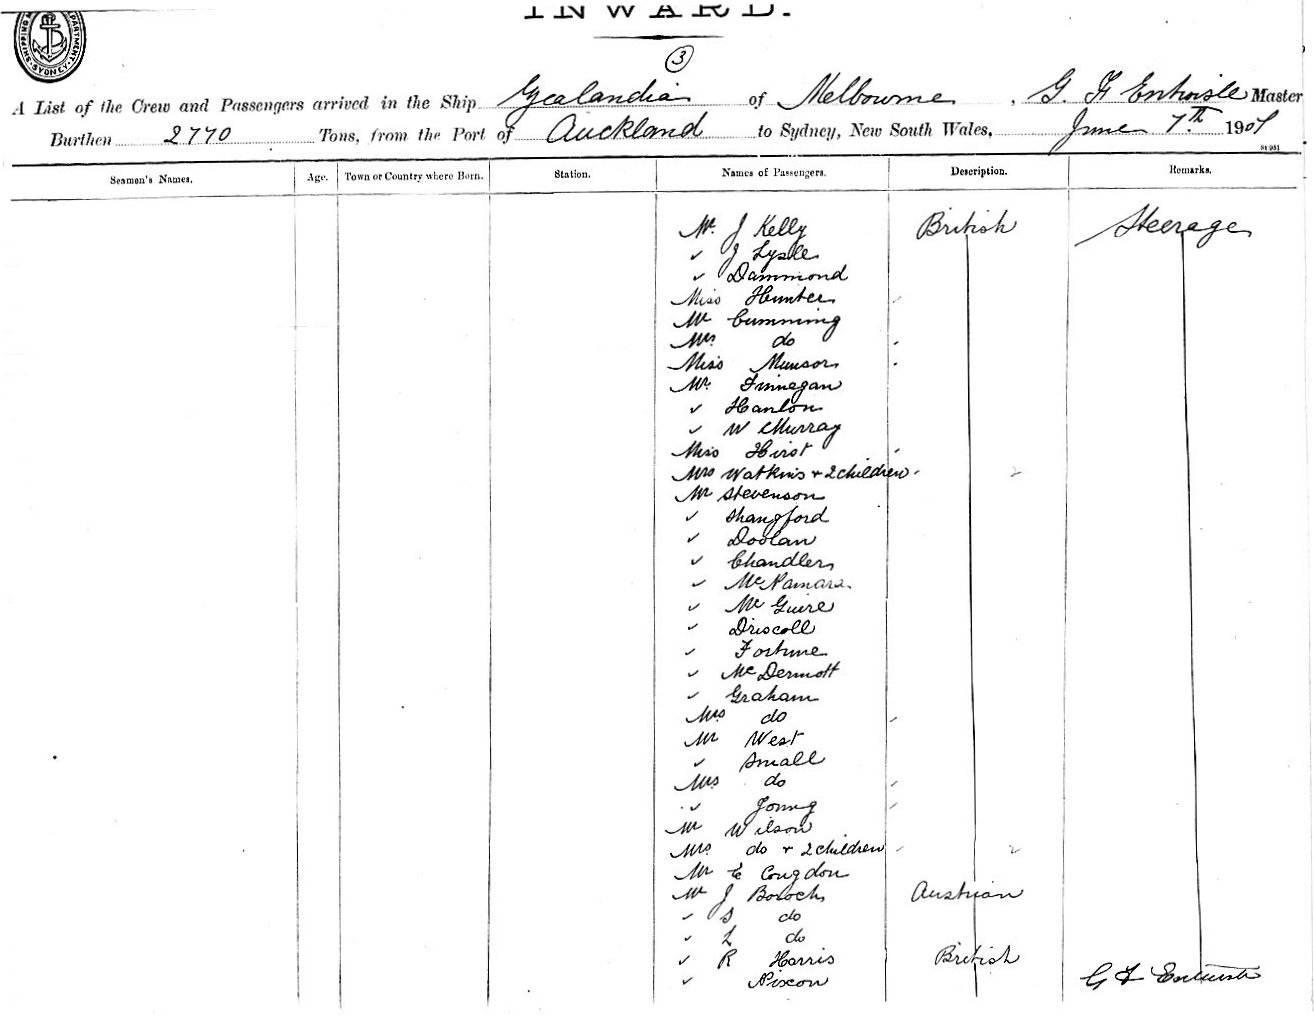 INWARD.
3
SHIPPING DEPARTMENT SYDNEY
A List of the Crew and Passengers arrived in the Ship Zealandia of Melbourne, G. F. Entwisle Master
Burthen 2770 Tons, from the Port of Auckland to Sydney, New South Wales, June 7th 1901
Seamen's Names. Age. Town or Country where Born. Station. Names of Passengers. Description. Remarks.
Mr. J Kelly British Steerage
✓ J Lysle
✓ Dammond
Miss Hunter
Mr Cumming
Mrs do
Miss Munson
Mr. Finnegan
✓ Hanlon
✓ W Murray
Miss Hirst
Mrs Watkins + 2 children 2
Mr Stevenson
✓ Shangford
✓ Doolan
✓ Chandler
✓ McNamara
✓ McGuire
✓ Driscoll
✓ Fortune
✓ McDermott
✓ Graham
Mrs do
Mr West
✓ Small
Mrs do
✓ Young
Mr Wilson
Mrs do + 2 children 2
Mr E Congdon
Mr J Boroch Austrian
✓ S do
✓ L do
✓ R Harris British
✓ Nixon G F Entwisle